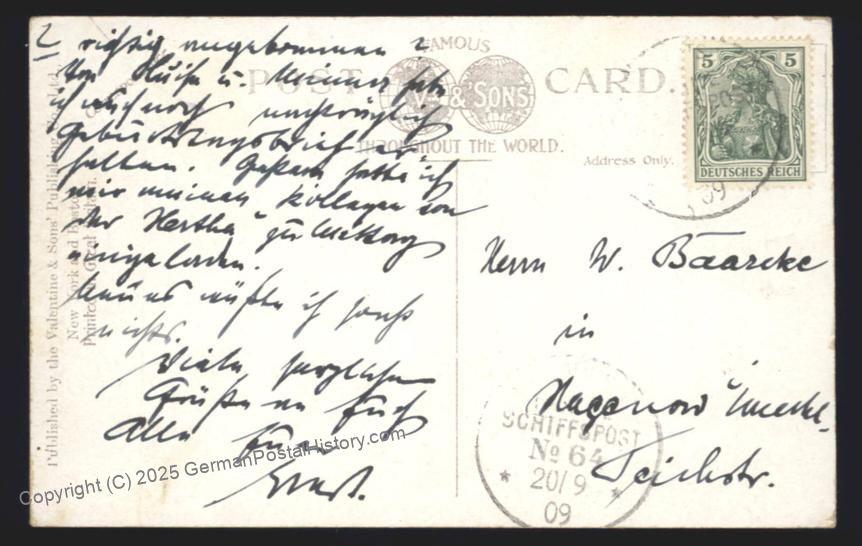 ? richtig angekommen?
Von Luise u. Minna habe
ich auch noch nachträglich
Geburtstagsbrief er-
halten. Gestern hatte ich
mir meinen Kollegen von
der "Hertha" zu Mittag
eingeladen.
ich sonst
nichts.
Viele herzliche
Grüße an Euch
Alle
Ernst.
FAMOUS
POST CARD.
V & SONS
THROUGHOUT THE WORLD.
Address Only.
Published by the Valentine & Sons' Publishing Co., Ltd.
New York and Boston
Printed in Great Britain.
5 5
DEUTSCHES REICH
09
Herrn W. Baarcke
in
Hagenow i/Meckl.
Teichstr.
SCHIFFSPOST
No 64
* 20/9 *
09
Copyright (C) 2025 GermanPostalHistory.com